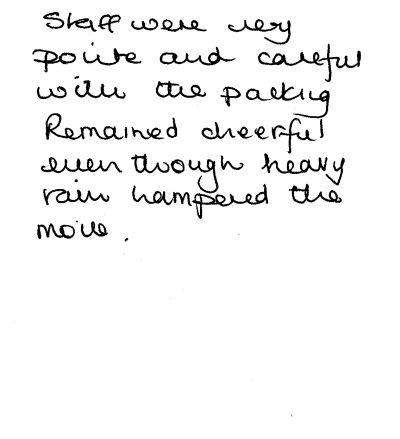 Staff were very
polite and careful
with the packing
Remained cheerful
even though heavy
rain hampered the
move.